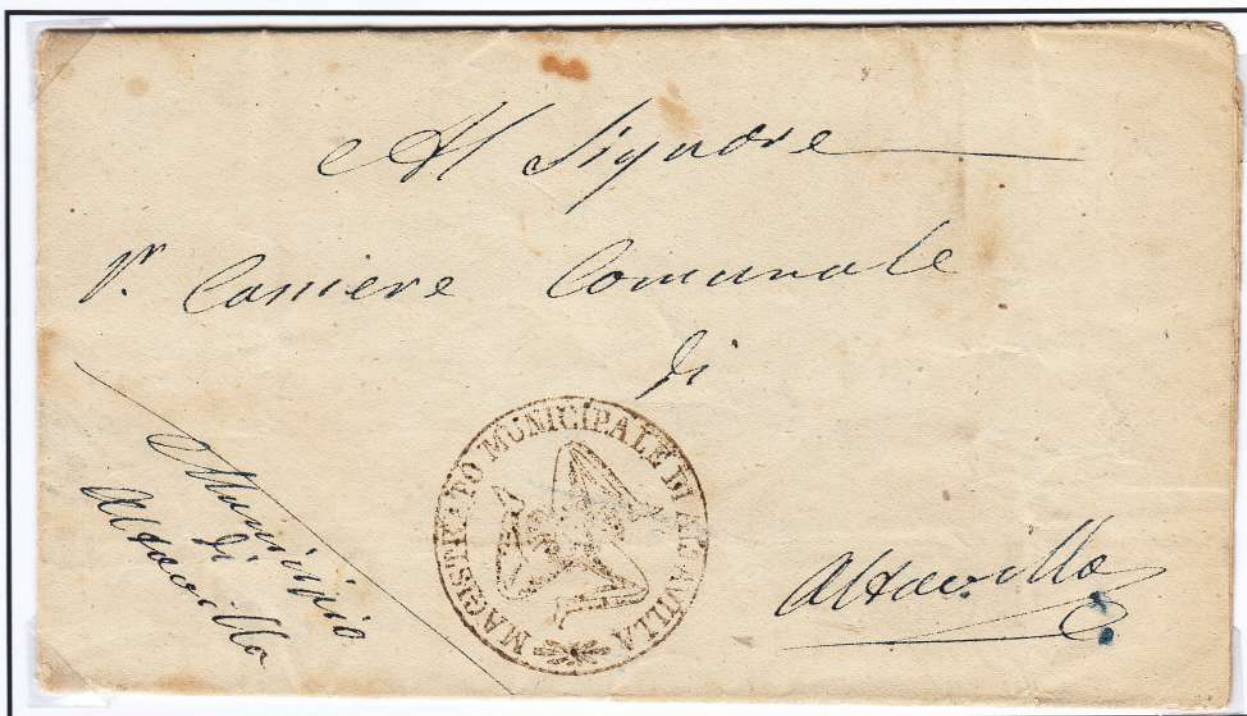 Al Signore
Cassiere Comunale
di
Altavilla
Municipio
di
Altavilla
MAGISTRATO MUNICIPALE DI ALTAVILLA